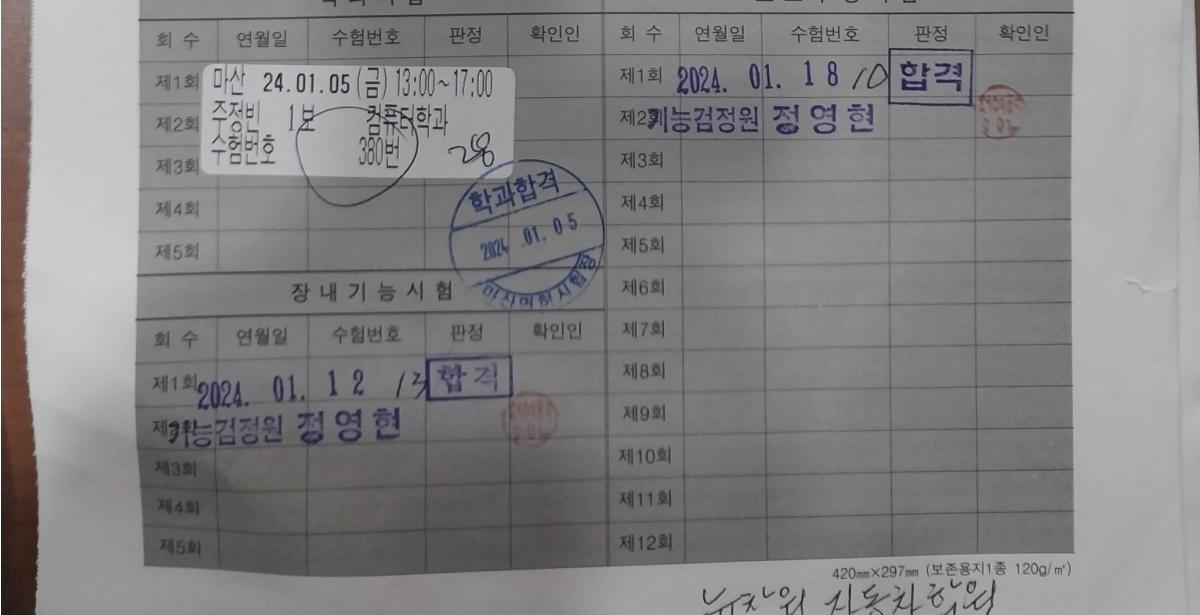 회 수 연월일 수험번호 판정 확인인
제1회
마산 24.01.05(금) 13:00~17:00
제2회
주정빈 1보 컴퓨터학과
수험번호 380번 28
제3회
제4회
제5회
학과합격
2024 .01. 05
마산면허시험장
장내기능시험
회 수 연월일 수험번호 판정 확인인
제1회 2024. 01. 12 13 합격
기능검정원 정영현
제3회
제4회
제5회
회 수 연월일 수험번호 판정 확인인
제1회 2024. 01. 18 10 합격
제2회 기능검정원 정영현
제3회
제4회
제5회
제6회
제7회
제8회
제9회
제10회
제11회
제12회
420㎜×297㎜ (보존용지1종 120g/㎡)
뉴창원 자동차학원